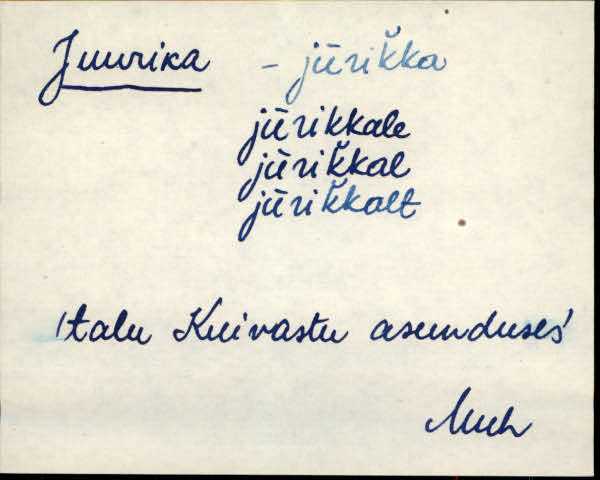 Juurika - jūrik̆ka
jūrikkale
jūrik̆kal
jūrik̆kalt
'talu Kuivastu asunduses'
Muh